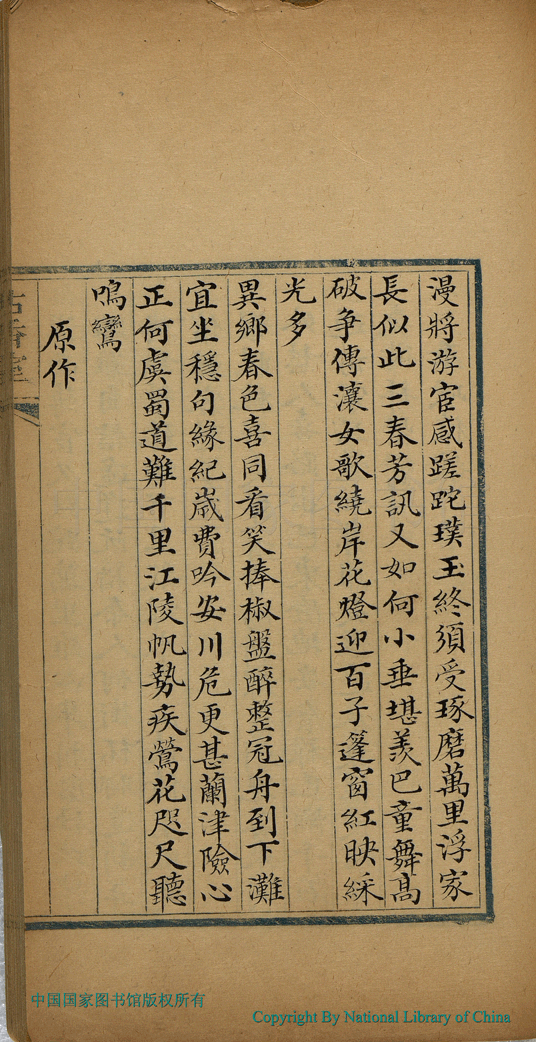 漫將游宦感蹉跎璞玉終須受琢磨萬里浮家
長似此三春芳訊又如何小垂堪羨巴童舞高
破争傳瀼女歌繞岸花燈迎百子篷窗紅映綵
光多
異鄉春色喜同看笑捧椒盤醉整冠舟到下灘
宜坐穩句緣紀歲費吟安川危更甚蘭津險心
正何虞蜀道難千里江陵帆勢疾鶯花咫尺聽
鳴鸞
原作
中国国家图书馆版权所有
Copyright By National Library of China